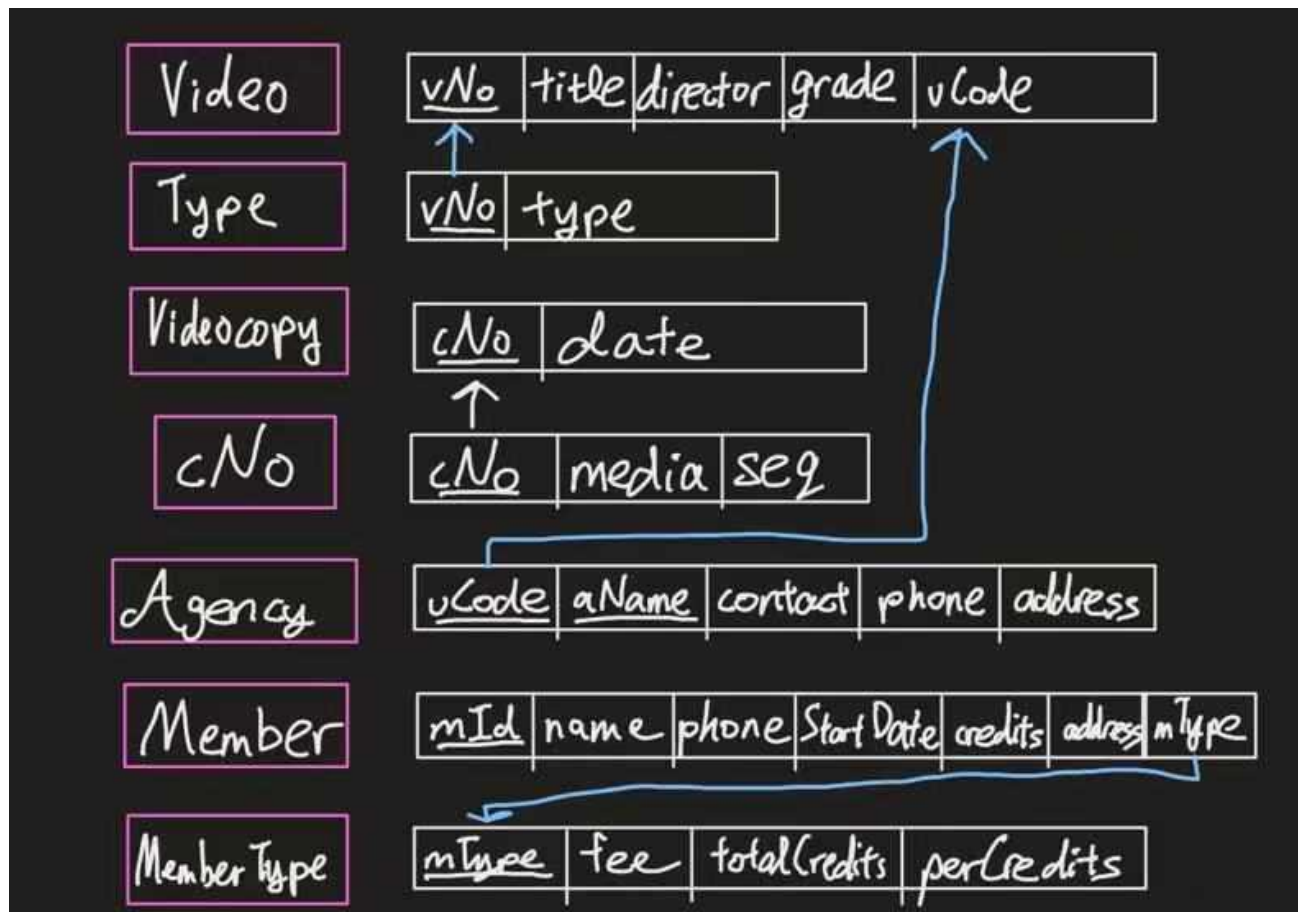 Video vNo title director grade vCode
Type vNo type
Videocopy cNo date
cNo cNo media seq
Agency vCode aName contact phone address
Member mId name phone StartDate credits address mType
MemberType mType fee totalCredits perCredits